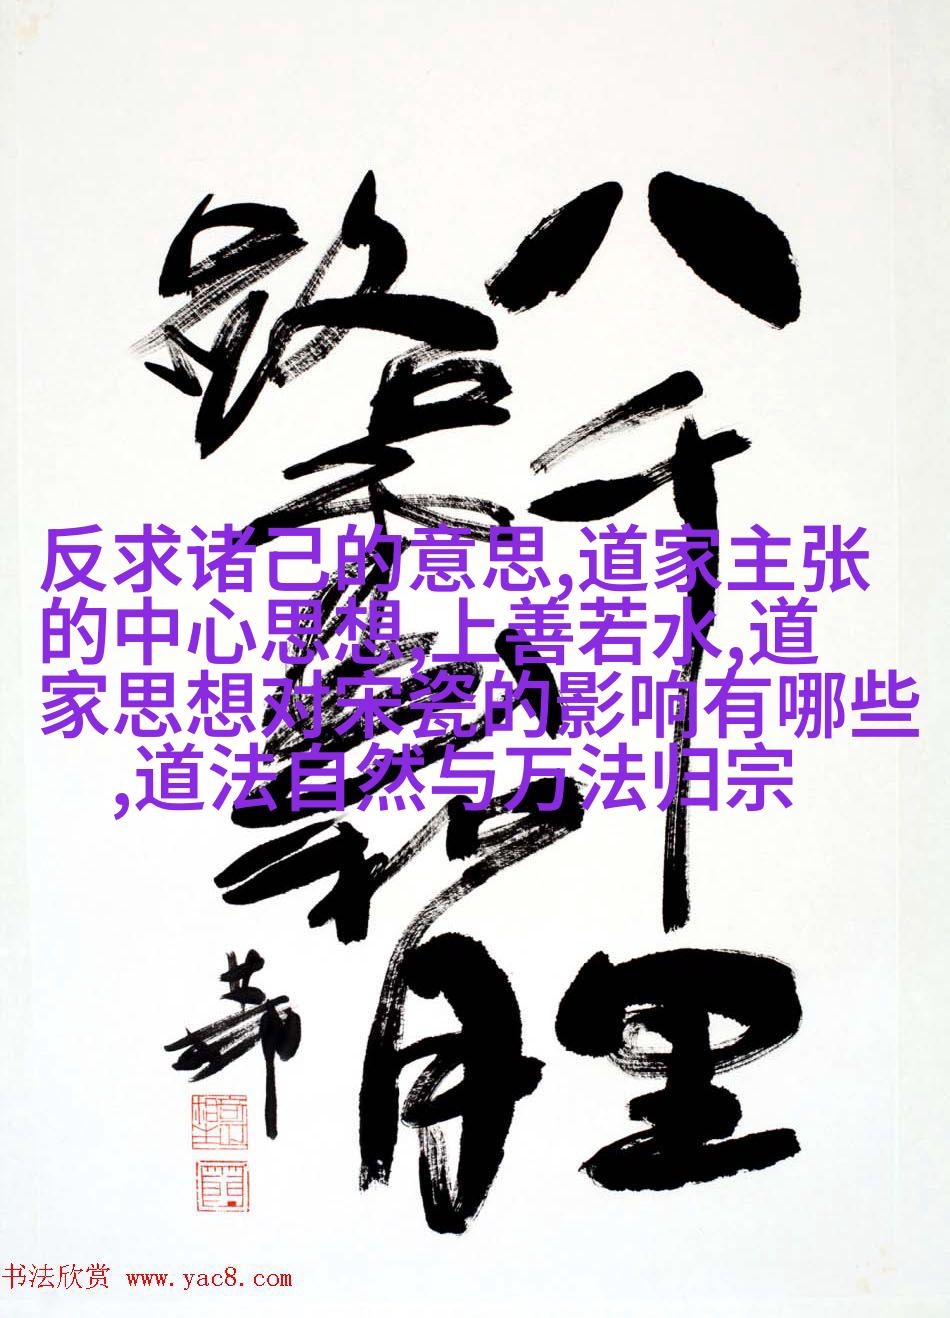 八千里
路云和月
反求诸己的意思,道家主张
的中心思想,上善若水,道
家思想对宋瓷的影响有哪些
,道法自然与万法归宗
书法欣赏 www.yac8.com